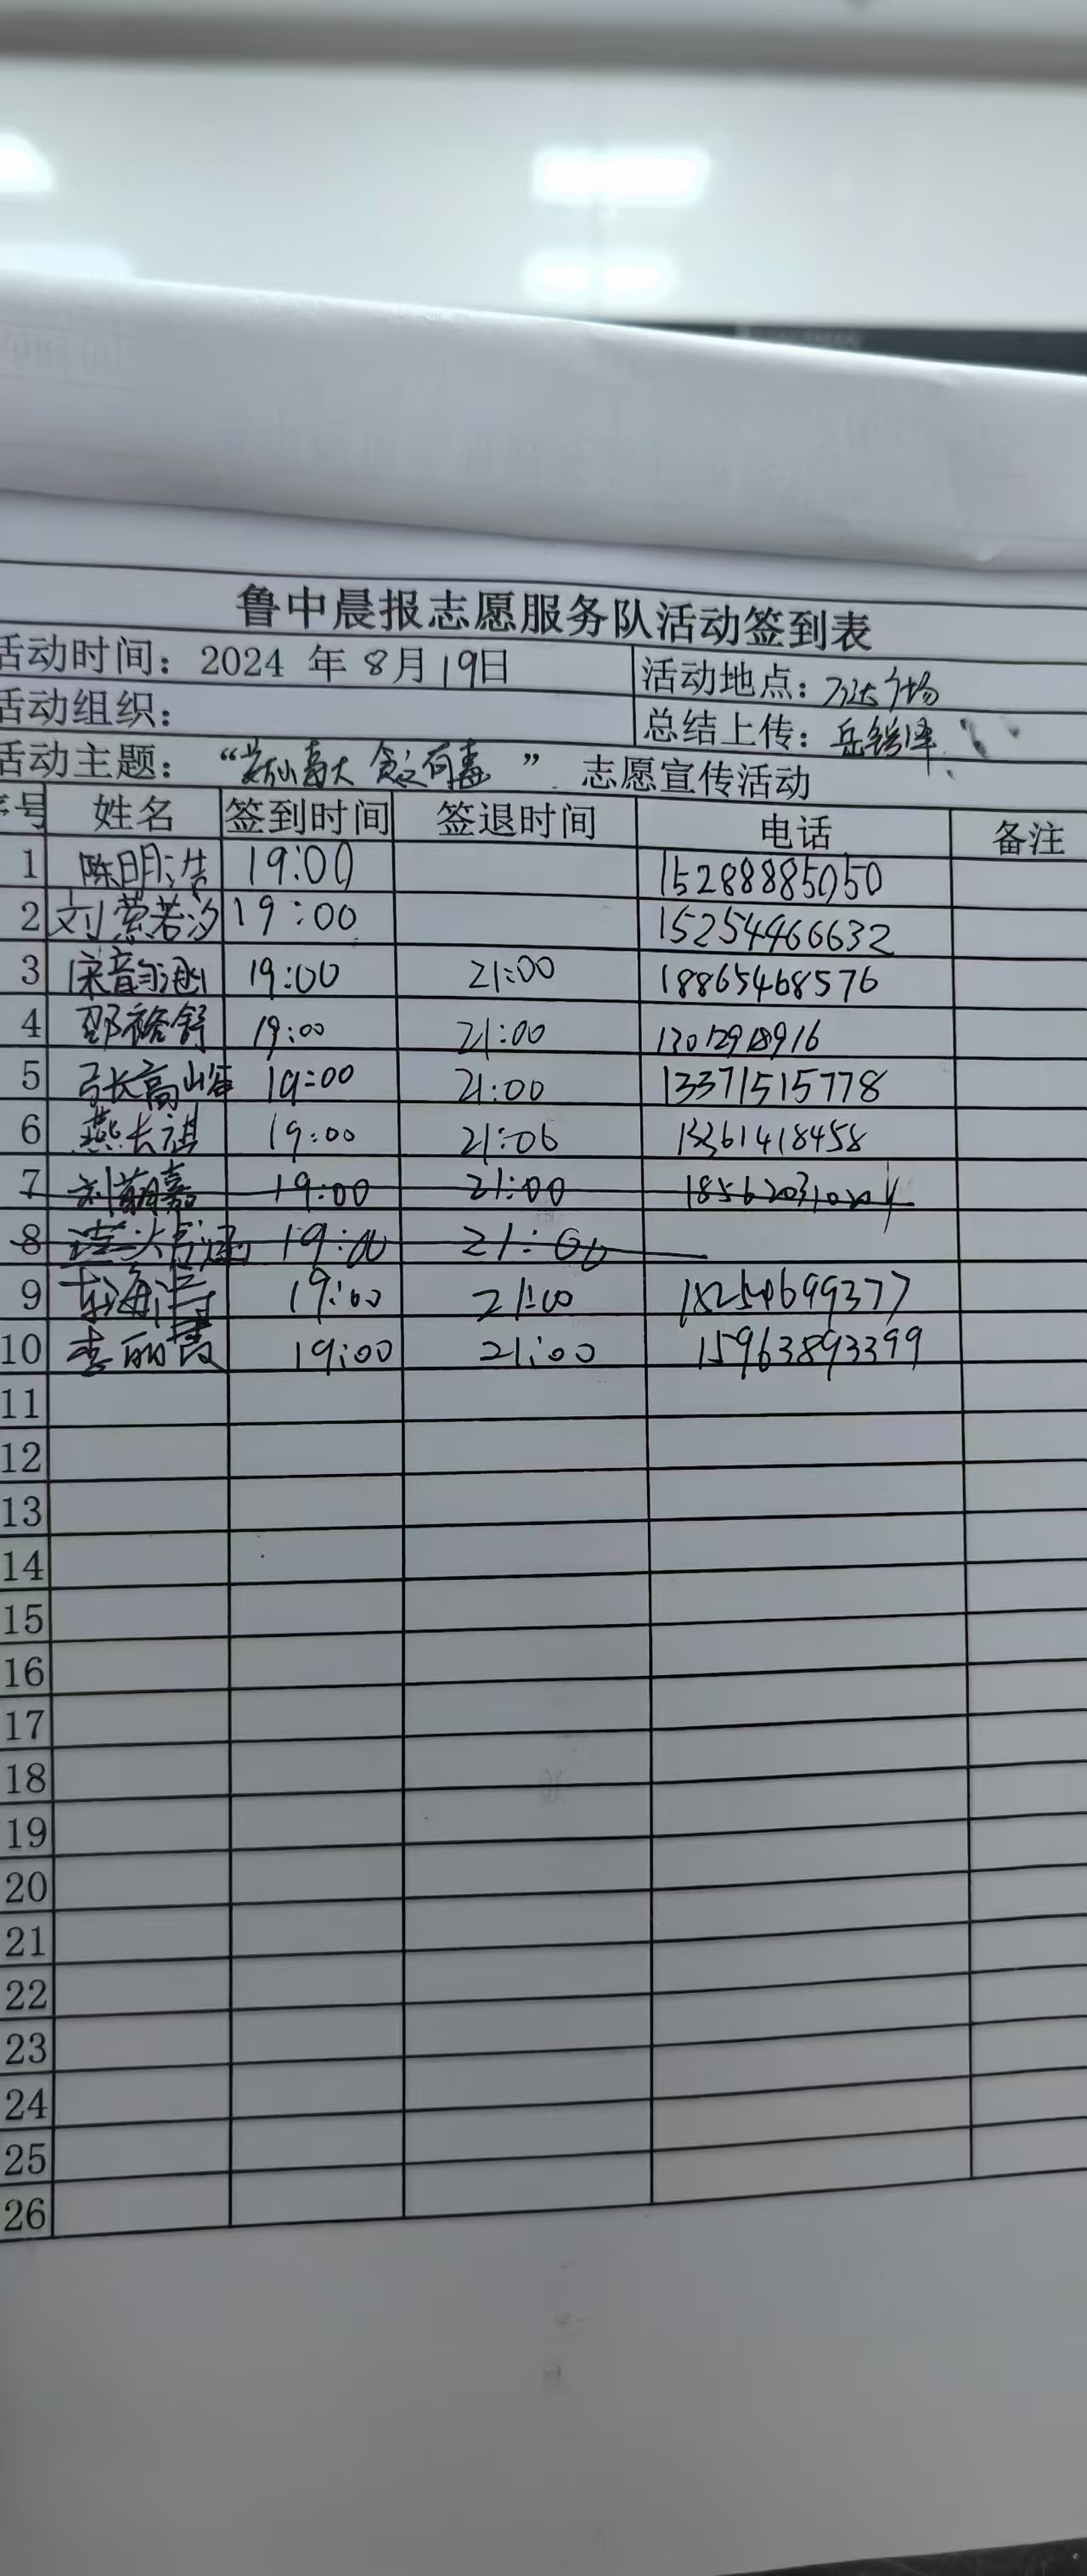 鲁中晨报志愿服务队活动签到表
活动时间：2024 年 8月19日 活动地点：万达广场
活动组织： 总结上传：岳
活动主题：“ ” 志愿宣传活动
序号 姓名 签到时间 签退时间 电话 备注
1 陈明浩 19:00 15288885050
2 刘萦若汐 19:00 15254466632
3 宋韵涵 19:00 21:00 18865468576
4 邵裕舒 19:00 21:00
5 张高峰 19:00 21:00 13371515778
6 燕长祺 19:00 21:00 13361418458
7 刘萌嘉 19:00 21:00
8 19:00 21:00
9 19:00 21:00 18254699377
10 李丽霞 19:00 21:00 15963893399
11
12
13
14
15
16
17
18
19
20
21
22
23
24
25
26